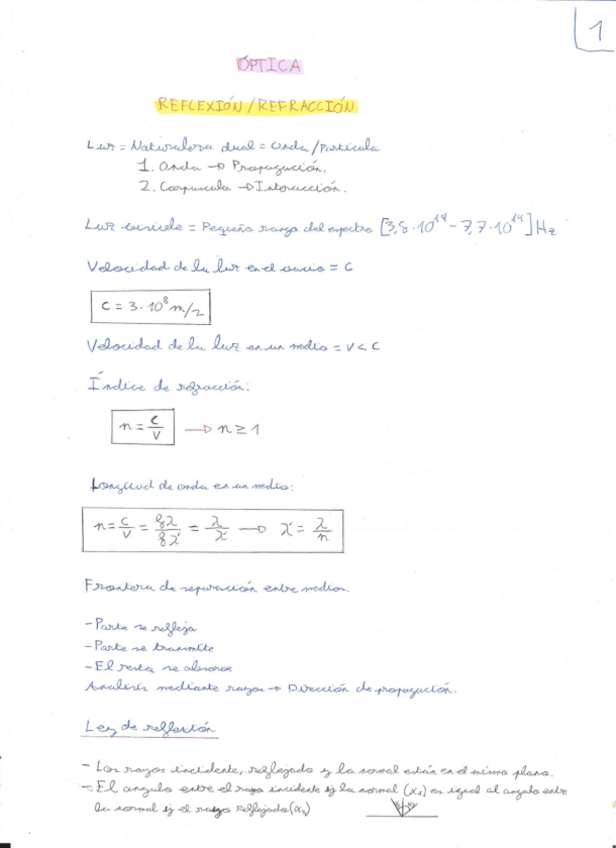 1
ÓPTICA
REFLEXIÓN/REFRACCIÓN
Luz = Naturaleza dual = Onda/Partícula
1. Onda → Propagación.
2. Corpúsculo → Interacción.
Luz visible = Pequeño rango del espectro [3,8·10¹⁴ - 7,7·10¹⁴] Hz
Velocidad de la luz en el vacío = C
C = 3·10⁸ m/s
Velocidad de la luz en un medio = V < C
Índice de refracción:
n = C/V → n ≥ 1
Longitud de onda en un medio:
n = C/V = fλ/fλ' = λ/λ' → λ' = λ/n
Frontera de separación entre medios.
- Parte se refleja
- Parte se transmite
- El resto se absorve
Analisis mediante rayos → Dirección de propagación.
Ley de reflexión
- Los rayos incidente, reflejado y la normal están en el mismo plano.
- El angulo entre el rayo incidente y la normal (α₁) es igual al angulo entre
la normal y el rayo reflejado (α₂)